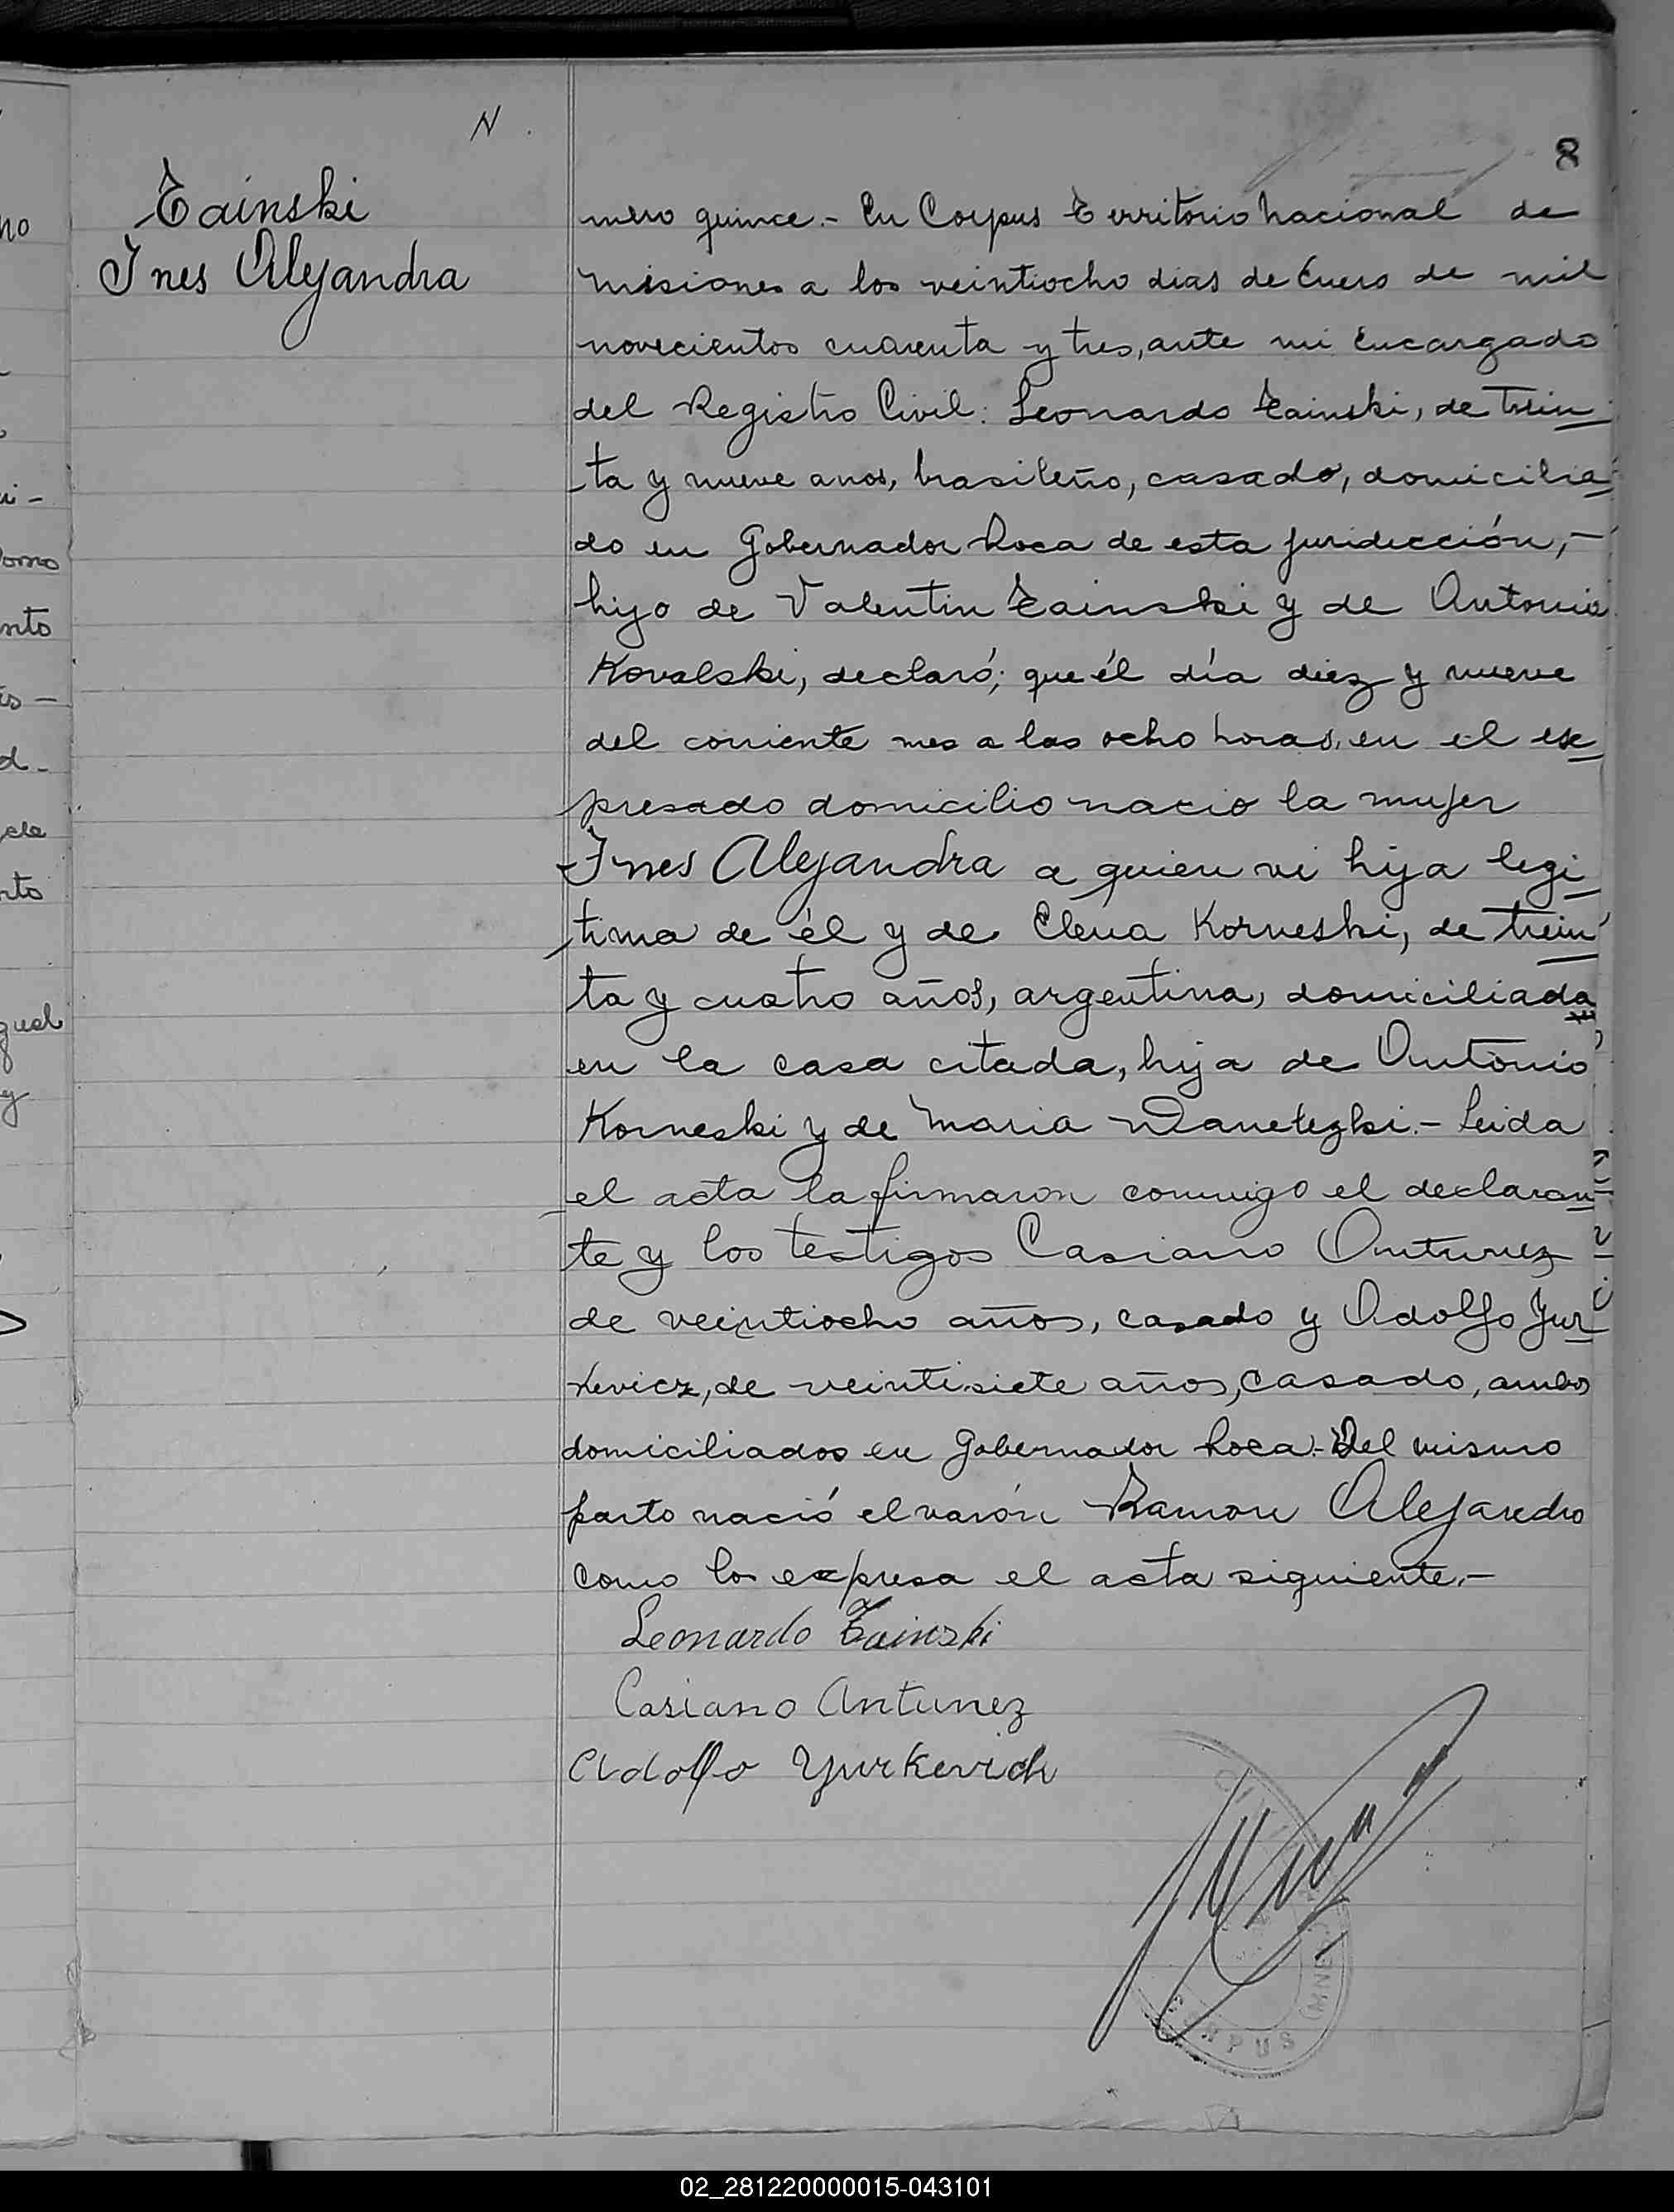 N.
8
Tainski
Ines Alejandra
mero quince.- En Corpus Territorio Nacional de
Misiones a los veintiocho dias de Enero de mil
novecientos cuarenta y tres, ante mi Encargado
del Registro Civil: Leonardo Tainski, de trein
ta y nueve anos, brasileño, casado, domicilia
do en Gobernador Roca de esta juridicción,-
hijo de Valentin Tainski y de Antonia
Kovalski, declaró; que él día diez y nueve
del corriente mes a las ocho horas, en el ex
presado domicilio nacio la mujer
Ines Alejandra a quien vi hija legi
tima de él y de Elena Korneski, de trein
ta y cuatro años, argentina, domiciliada
en la casa citada, hija de Antonio
Korneski y de Maria .- Leida
el acta la firmaron conmigo el declaran
te y los testigos Casiano Antunez
de veintiocho años, casado y Adolfo Jur
kevicz, de veintisiete años, casado, ambos
domiciliados en Gobernador Roca.- Del mismo
parto nació el varón Ramon Alejandro
como lo expresa el acta siguiente.-
Leonardo Tainski
Casiano Antunez
Adolfo Yurkevich
CORPUS (MNES)
no
ui-
omo
nto
d-
rto
y
02_281220000015-043101